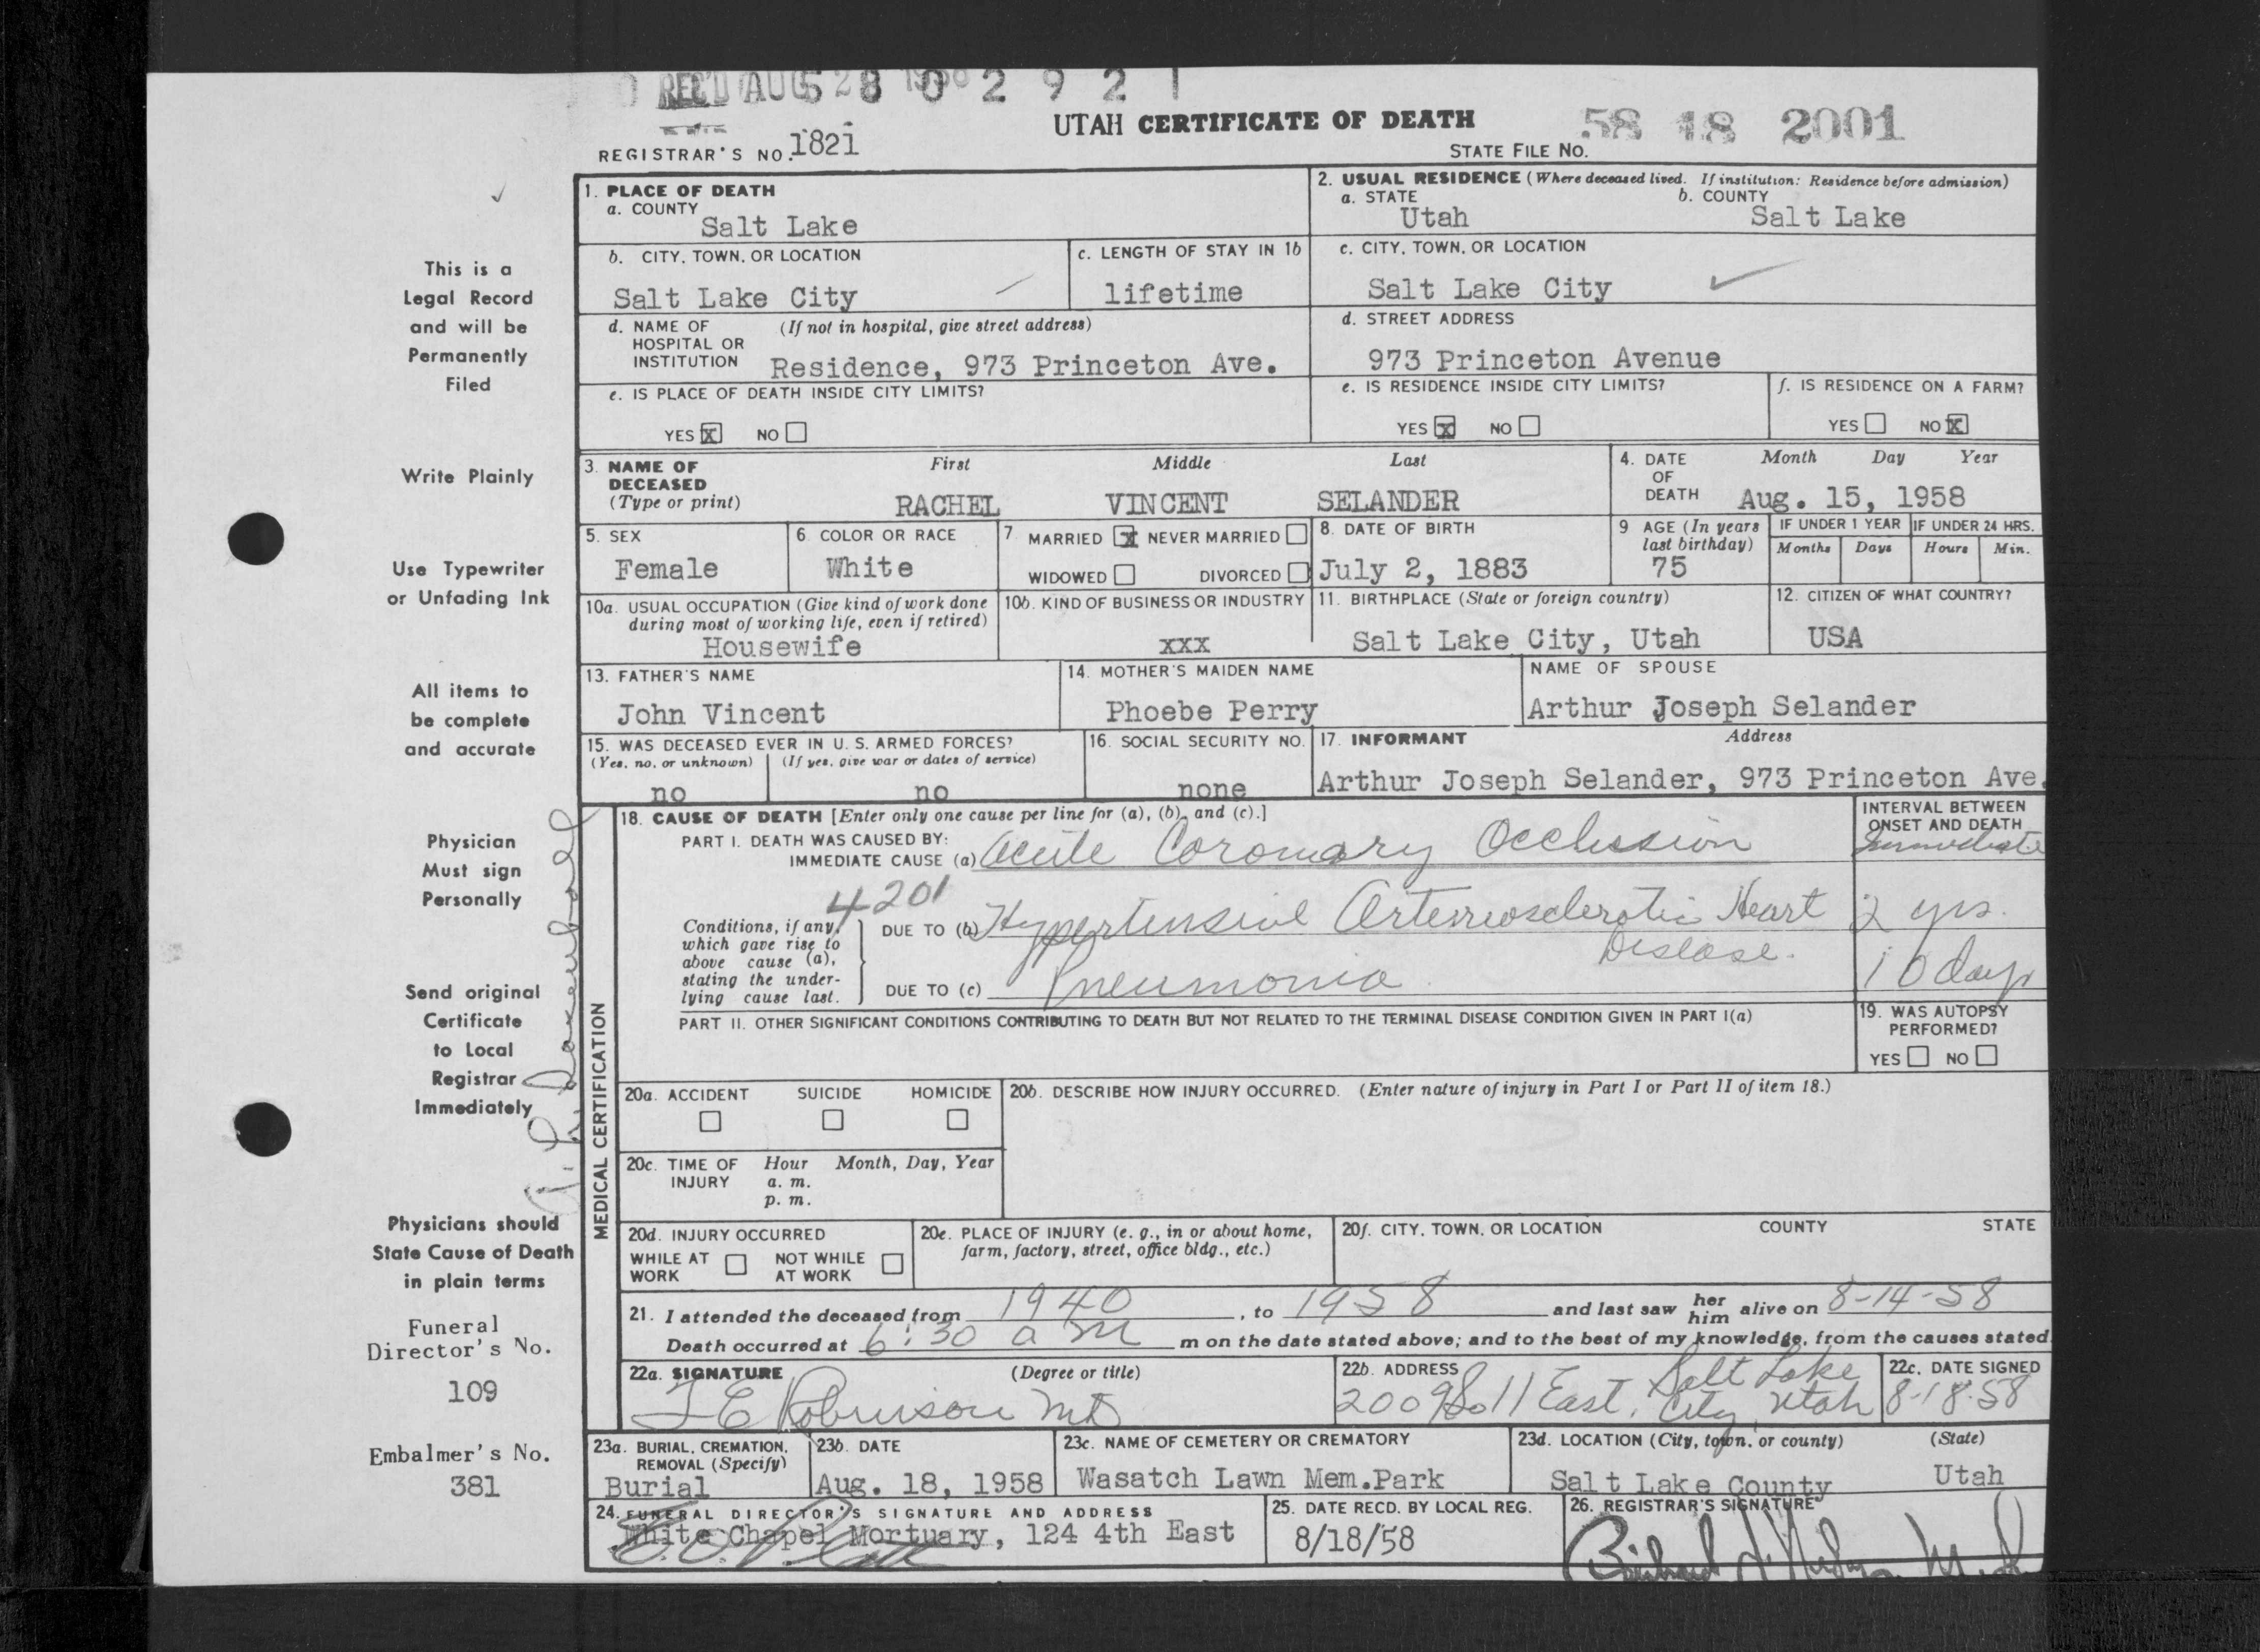 REC'D AUG 28 1958
5 8 0 2 9 2 1
UTAH CERTIFICATE OF DEATH
58 18 2001
REGISTRAR'S NO. 1821
STATE FILE NO.
This is a
Legal Record
and will be
Permanently
Filed
Write Plainly
Use Typewriter
or Unfading Ink
All items to
be complete
and accurate
Physician
Must sign
Personally
Send original
Certificate
to Local
Registrar
Immediately
Physicians should
State Cause of Death
in plain terms
Funeral
Director's No.
109
Embalmer's No.
381
1. PLACE OF DEATH
a. COUNTY
Salt Lake
2. USUAL RESIDENCE (Where deceased lived. If institution: Residence before admission)
a. STATE b. COUNTY
Utah Salt Lake
b. CITY, TOWN, OR LOCATION
Salt Lake City
c. LENGTH OF STAY IN 1b
lifetime
c. CITY, TOWN, OR LOCATION
Salt Lake City
d. NAME OF (If not in hospital, give street address)
HOSPITAL OR
INSTITUTION Residence, 973 Princeton Ave.
d. STREET ADDRESS
973 Princeton Avenue
e. IS PLACE OF DEATH INSIDE CITY LIMITS?
YES X NO
e. IS RESIDENCE INSIDE CITY LIMITS?
YES X NO
f. IS RESIDENCE ON A FARM?
YES NO X
3. NAME OF First Middle Last
DECEASED
(Type or print) RACHEL VINCENT SELANDER
4. DATE Month Day Year
OF
DEATH Aug. 15, 1958
5. SEX
Female
6. COLOR OR RACE
White
7 MARRIED X NEVER MARRIED
WIDOWED DIVORCED
8. DATE OF BIRTH
July 2, 1883
9 AGE (In years
last birthday)
75
IF UNDER 1 YEAR IF UNDER 24 HRS.
Months Days Hours Min.
10a. USUAL OCCUPATION (Give kind of work done
during most of working life, even if retired)
Housewife
10b. KIND OF BUSINESS OR INDUSTRY
xxx
11. BIRTHPLACE (State or foreign country)
Salt Lake City, Utah
12. CITIZEN OF WHAT COUNTRY?
USA
13. FATHER'S NAME
John Vincent
14. MOTHER'S MAIDEN NAME
Phoebe Perry
NAME OF SPOUSE
Arthur Joseph Selander
15. WAS DECEASED EVER IN U. S. ARMED FORCES?
(Yes, no, or unknown) (If yes, give war or dates of service)
no no
16. SOCIAL SECURITY NO.
none
17. INFORMANT Address
Arthur Joseph Selander, 973 Princeton Ave.
MEDICAL CERTIFICATION
18. CAUSE OF DEATH [Enter only one cause per line for (a), (b), and (c).]
INTERVAL BETWEEN
ONSET AND DEATH
PART I. DEATH WAS CAUSED BY:
IMMEDIATE CAUSE (a) Acute Coronary Occlusion Immediate
4201
Conditions, if any,
which gave rise to
above cause (a),
stating the under-
lying cause last.
DUE TO (b) Hypertensive Arteriosclerotic Heart 2 yrs.
Disease.
DUE TO (c) Pneumonia 10 days
PART II. OTHER SIGNIFICANT CONDITIONS CONTRIBUTING TO DEATH BUT NOT RELATED TO THE TERMINAL DISEASE CONDITION GIVEN IN PART I(a)
19. WAS AUTOPSY
PERFORMED?
YES NO
20a. ACCIDENT SUICIDE HOMICIDE
20b. DESCRIBE HOW INJURY OCCURRED. (Enter nature of injury in Part I or Part II of item 18.)
20c. TIME OF Hour Month, Day, Year
INJURY a. m.
p. m.
20d. INJURY OCCURRED
WHILE AT NOT WHILE
WORK AT WORK
20e. PLACE OF INJURY (e. g., in or about home,
farm, factory, street, office bldg., etc.)
20f. CITY, TOWN, OR LOCATION COUNTY STATE
21. I attended the deceased from 1940, to 1958 and last saw her him alive on 8-14-58
Death occurred at 6:30 a m m on the date stated above; and to the best of my knowledge, from the causes stated
22a. SIGNATURE (Degree or title)
Robinson MD
22b. ADDRESS
2009 So 11 East, Salt Lake
City, Utah
22c. DATE SIGNED
8-18-58
23a. BURIAL, CREMATION,
REMOVAL (Specify)
Burial
23b. DATE
Aug. 18, 1958
23c. NAME OF CEMETERY OR CREMATORY
Wasatch Lawn Mem.Park
23d. LOCATION (City, town, or county) (State)
Salt Lake County Utah
24. FUNERAL DIRECTOR'S SIGNATURE AND ADDRESS
White Chapel Mortuary, 124 4th East
25. DATE RECD. BY LOCAL REG.
8/18/58
26. REGISTRAR'S SIGNATURE